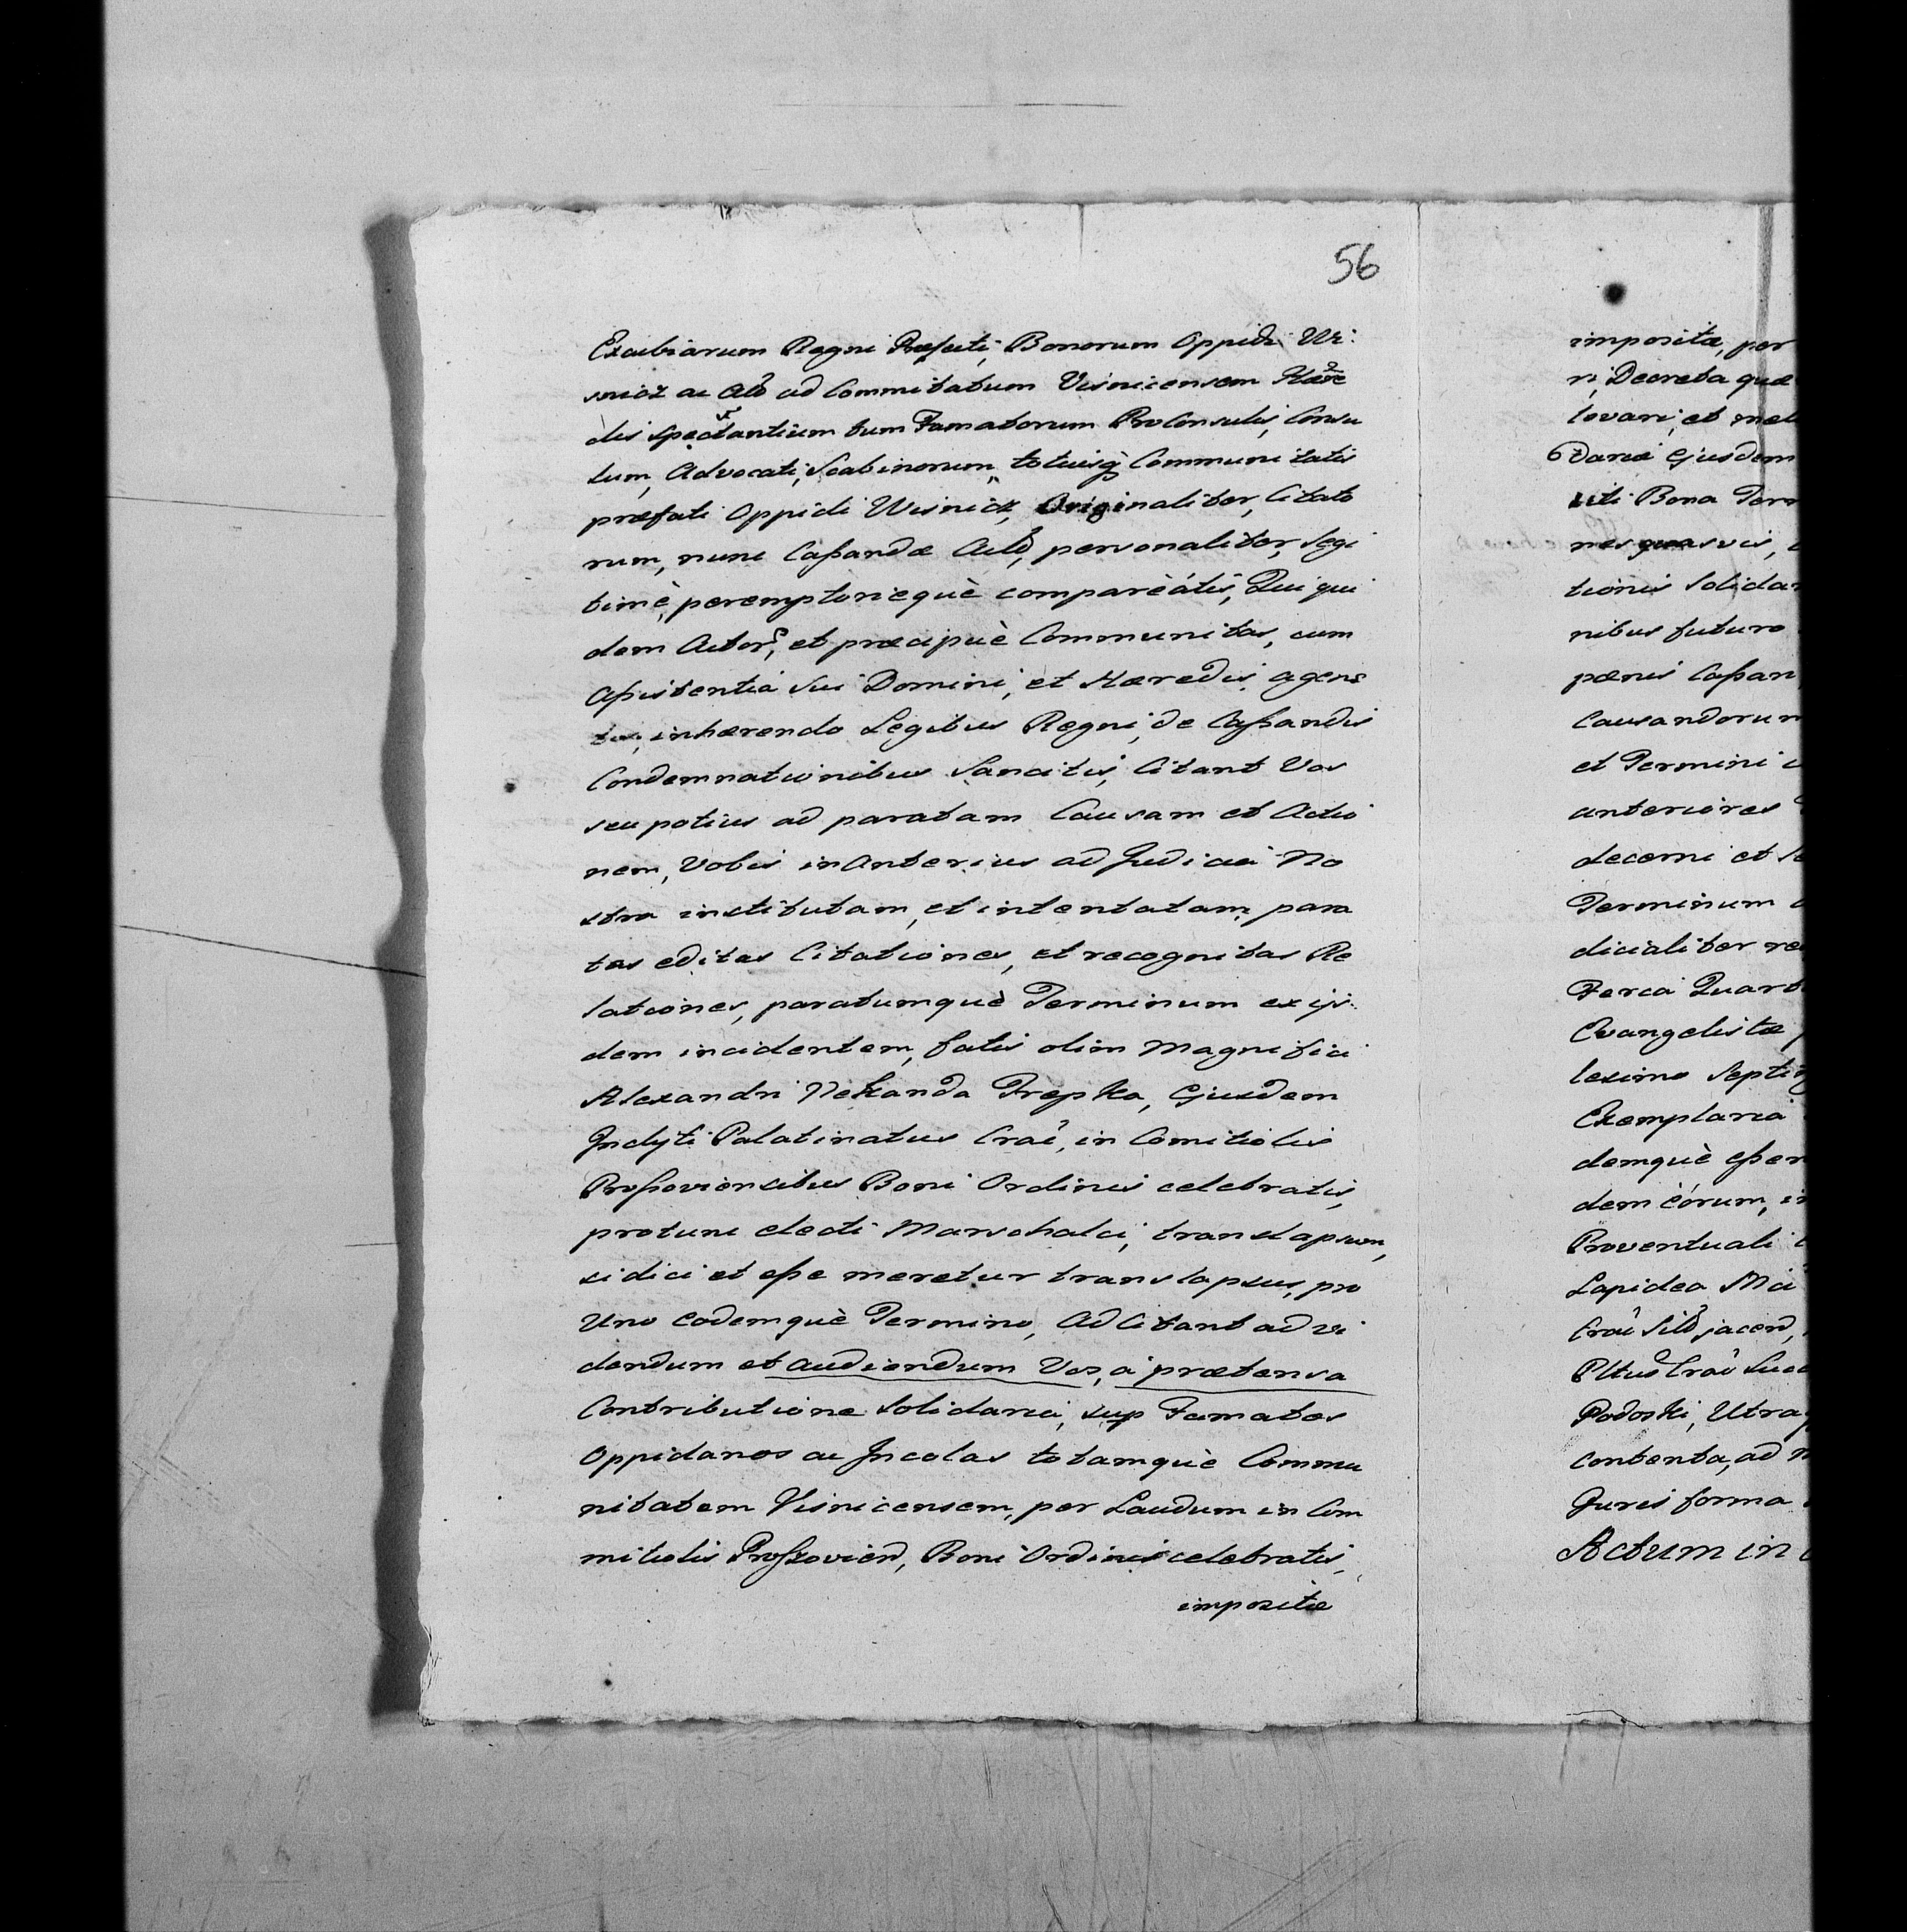 56
Excubiarum Regni Præfecti, Bonorum Oppidi Wi:
snicz ac aliõ ad Commitatum Visnicensem Hære
dis spectantium tum Famatorum ProConsulis, Consu
lum, Advocati, Scabinorum, totiusq̃ Communitatis
præfati Oppidi Wisnicz, Originaliter, Citato
rum, nunc Cassandæ personaliter, legi
timè, peremptoriequè compareátis, Qui qui
dem et præcipuè Communitas, cum
Assistentiá sui Domini, et Hæredis, agens
inhærendo Legibus Regni, de Cassandis
Condemnationibus Sancitis, Citant Vos
seu potius ad paratam Causam et Actio
nem, Vobis inAnterius ad Judicia No
stra institutam, et intentatam, para
tas editas Citationes, et recognitas Re
lationes, paratumquè Terminum ex ijs
dem incidentem, fatis olim Magnifici
Alexandri Nekanda Trepka, Ejusdem
Inclyti Palatinatus Craĉ, in Comitiolis
Proszoviensibus Boni Ordinis celebratis,
protunc electi Marschalci, translapsum,
sidici et esse meretur translapsus, pro
Uno eodemquè Termino, AdCitant ad vi
dendum et audiendum Vos, a prætensa
Contributione solidaria, sup Famatos
Oppidanos ac Incolas totamquè Commu
nitatem Visnicensem, per Laudum in Com
mitiolis Proszovień, Boni Ordinis celebratis,
impositæ
impositæ, per
ri, Decreta quæ
levari, et
Daria Ejusdem
Bona
nes quasvis,
tionis solidar
nibus futuro
pænis Cassan
Causandorum
et Termini
anteriores
decerni et
Terminum
dicialiter
Feria Quart
Evangelistæ
lesimo Septi
Exemplaria
demquè essen
dem eórum,
Proventuali
Lapidea
Craĉ jacen
Craĉ
Podoski, Utra
contenta, ad
Juris forma
Actum in